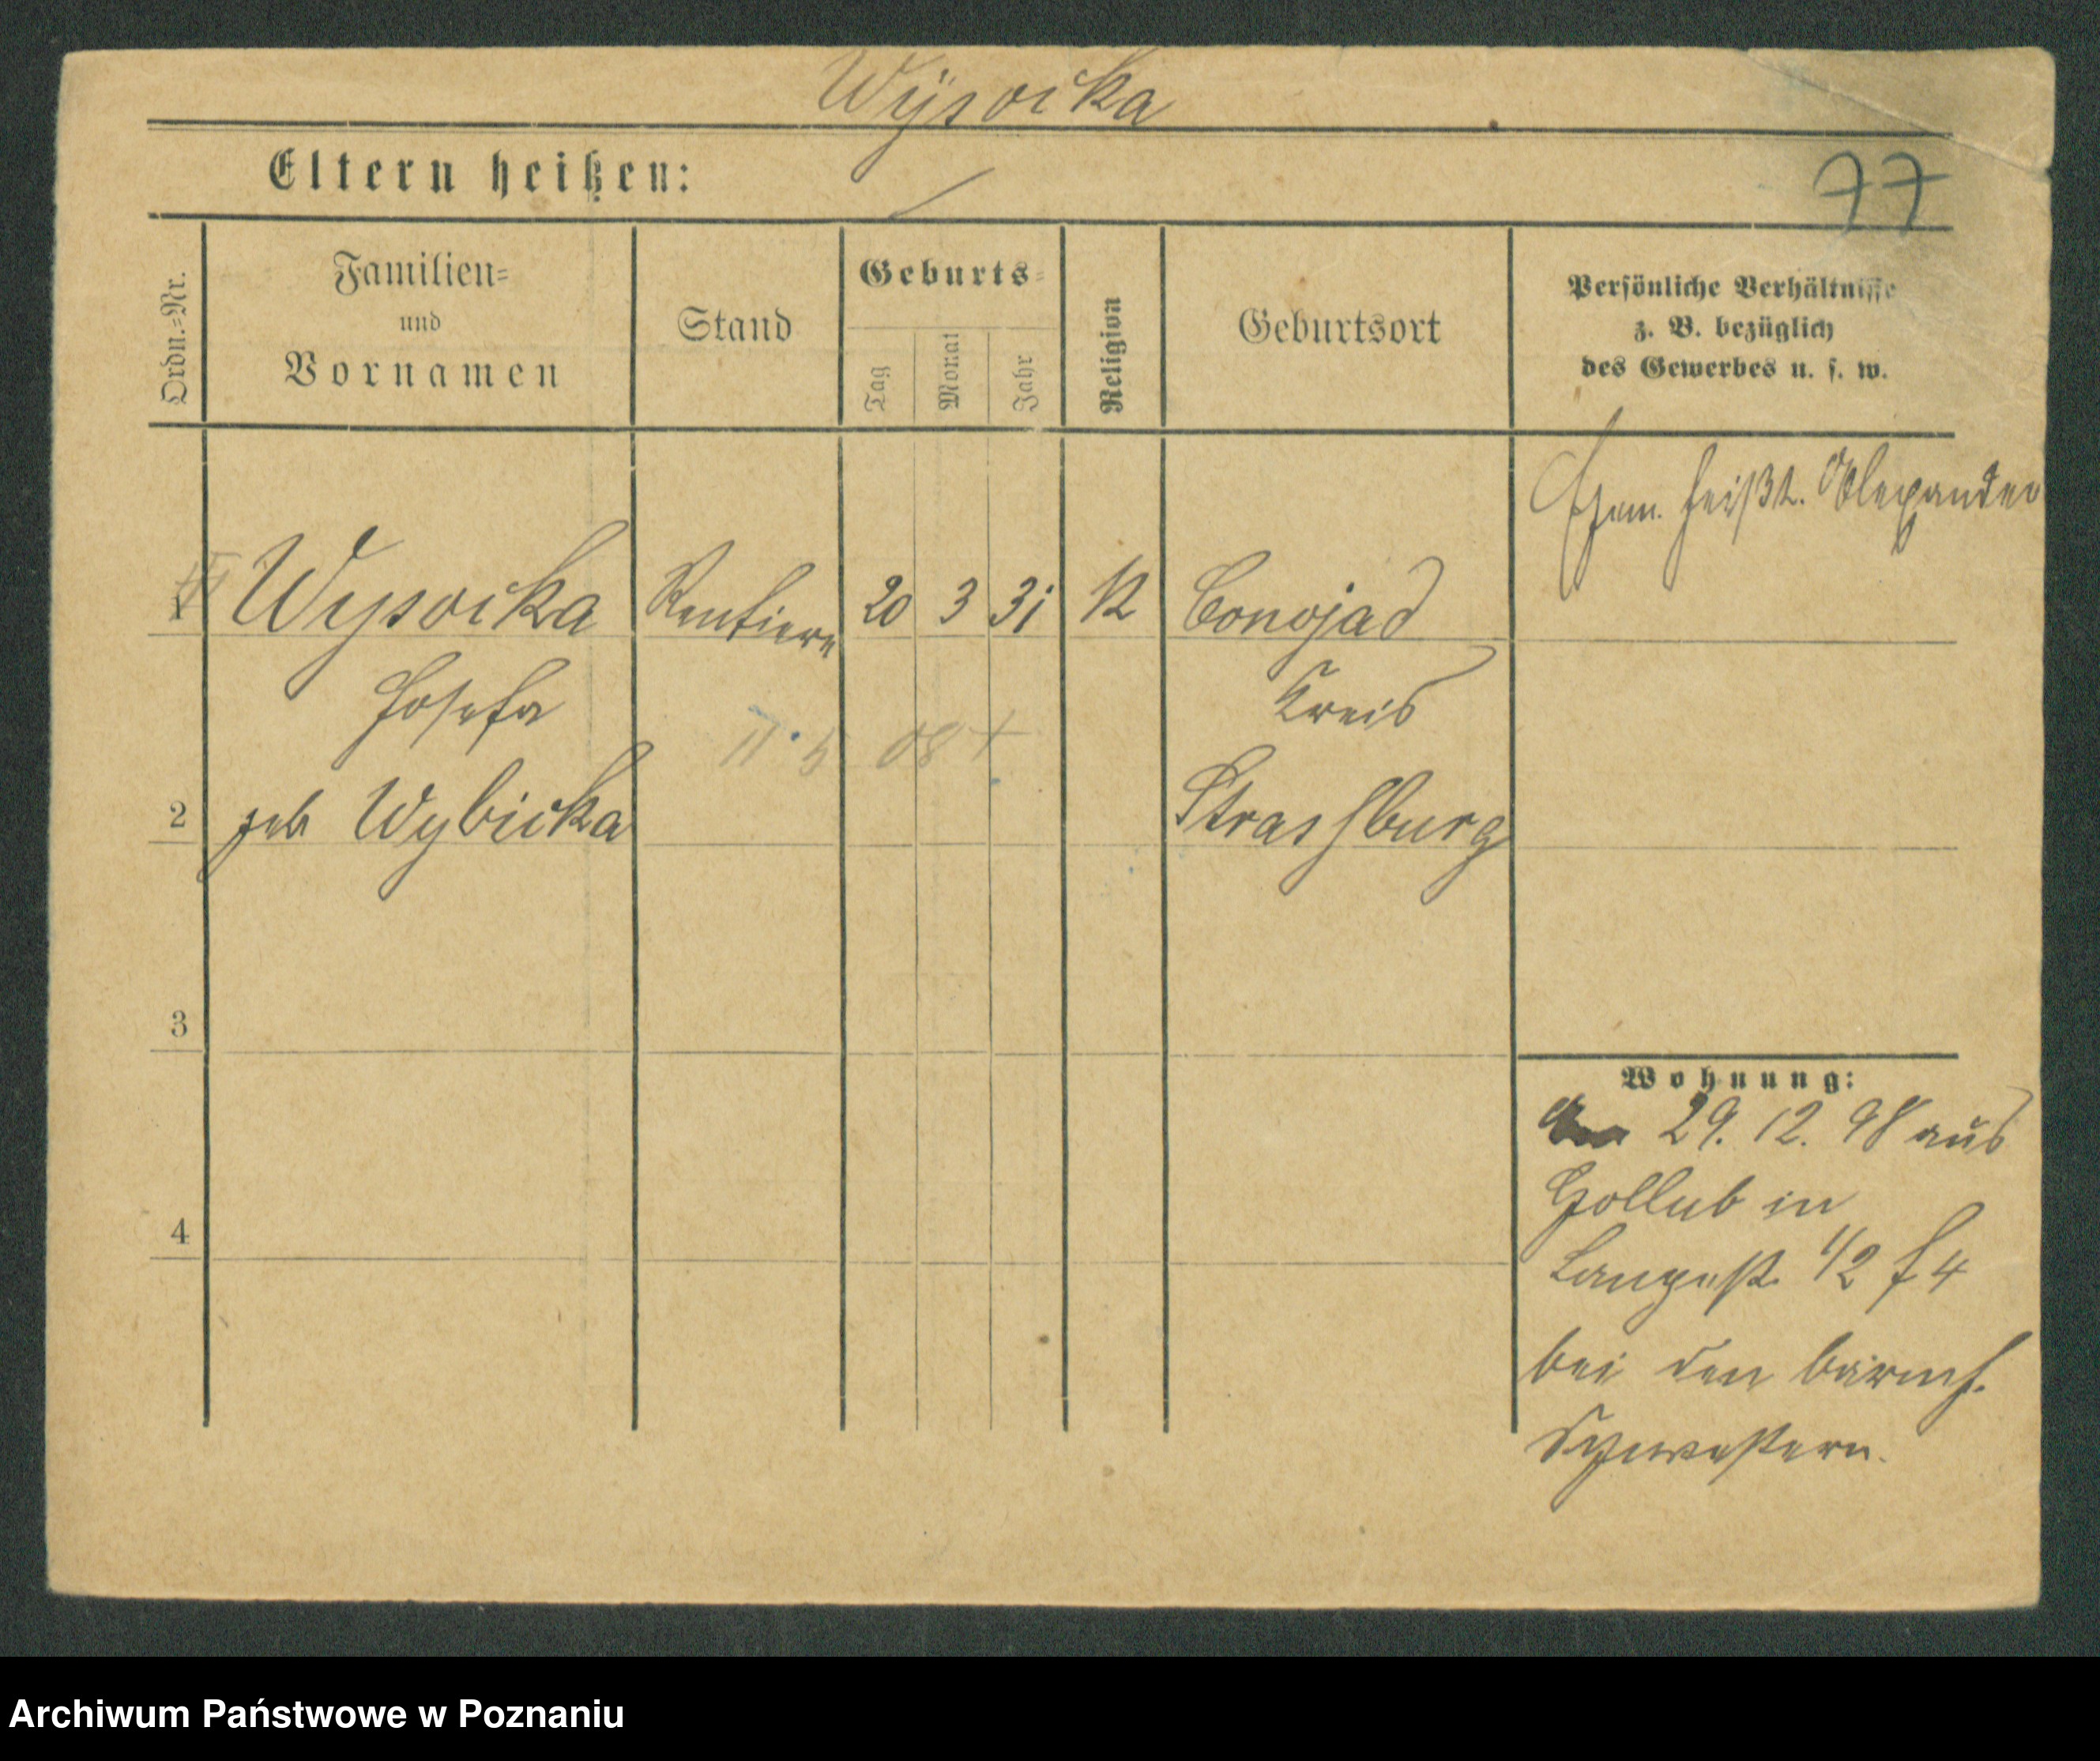 Wÿsocka
Eltern heißen:
77
Ordn.=Nr.
Familien=
und
Vornamen
Stand
Geburts=
Tag
Monat
Jahr
Religion
Geburtsort
Persönliche Verhältnisse
z. B. bezüglich
des Gewerbes u. s. w.
Ehem. heißt. Alexander
1 Wysocka Rentiere 20 3 31 K Conojad
Josefa Kreis
08 +
2 geb Wybicka Strassburg
3
Wohnung:
29. 12. 98 aus
Gollub in
4
Langestr. 1/2 f 4
bei den barmh.
Schwestern.
Archiwum Państwowe w Poznaniu